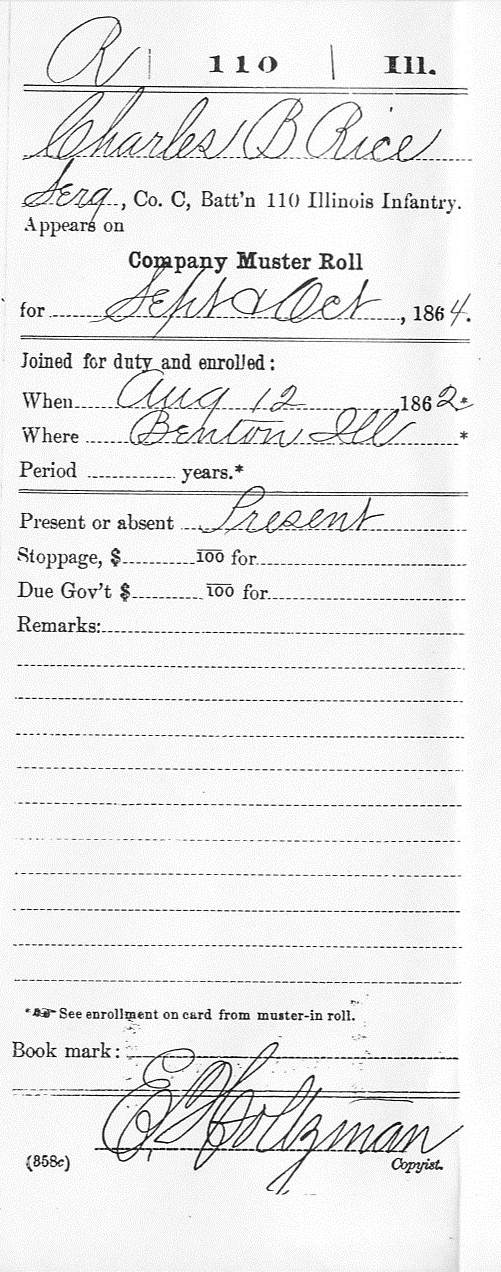 R | 110 | Ill.
Charles B Rice
Serg, Co. C, Batt'n 110 Illinois Infantry.
Appears on
Company Muster Roll
for Sept & Oct, 1864.
Joined for duty and enrolled:
When Aug 12 1862*
Where Benton Ill *
Period years.*
Present or absent Present
Stoppage, $ 100 for
Due Gov't $ 100 for
Remarks:
* See enrollment on card from muster-in roll.
Book mark:
Holtzman
(858c) Copyist.